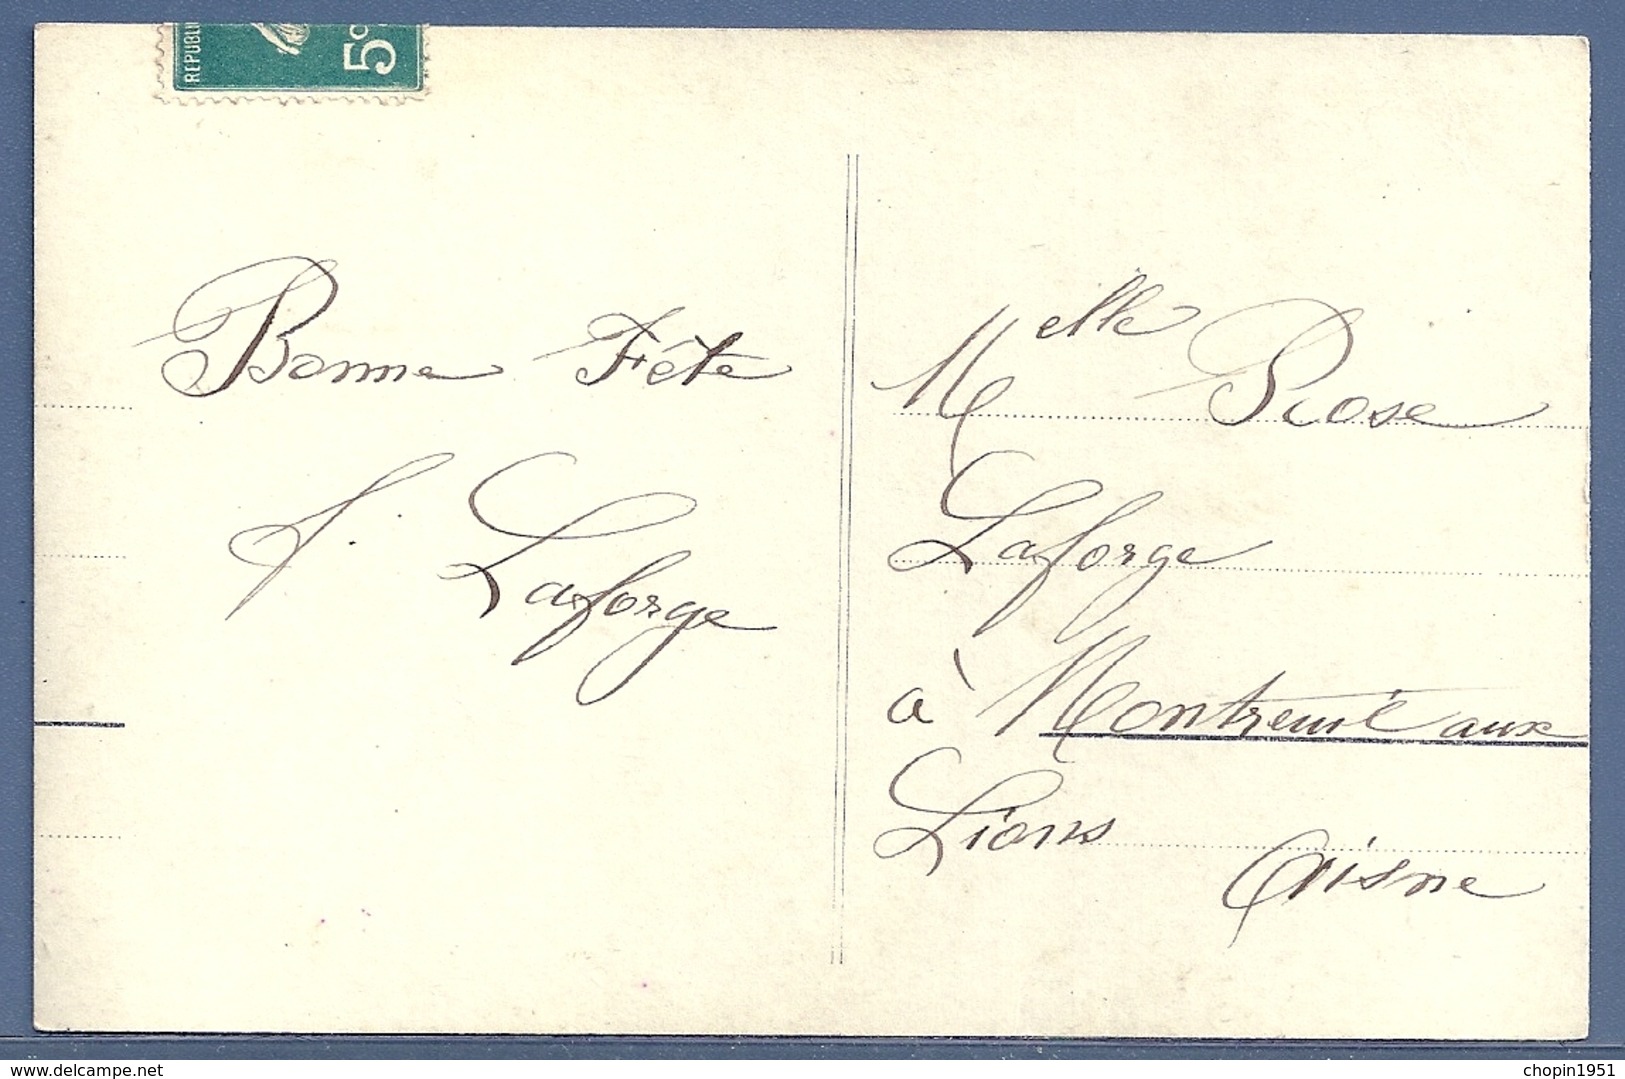 REPUBLI
5c
Bonne Fête
J. Laforge
Melle Rose
Laforge
à Montreuil aux
Lions
Aisne
www.delcampe.net
chopin1951